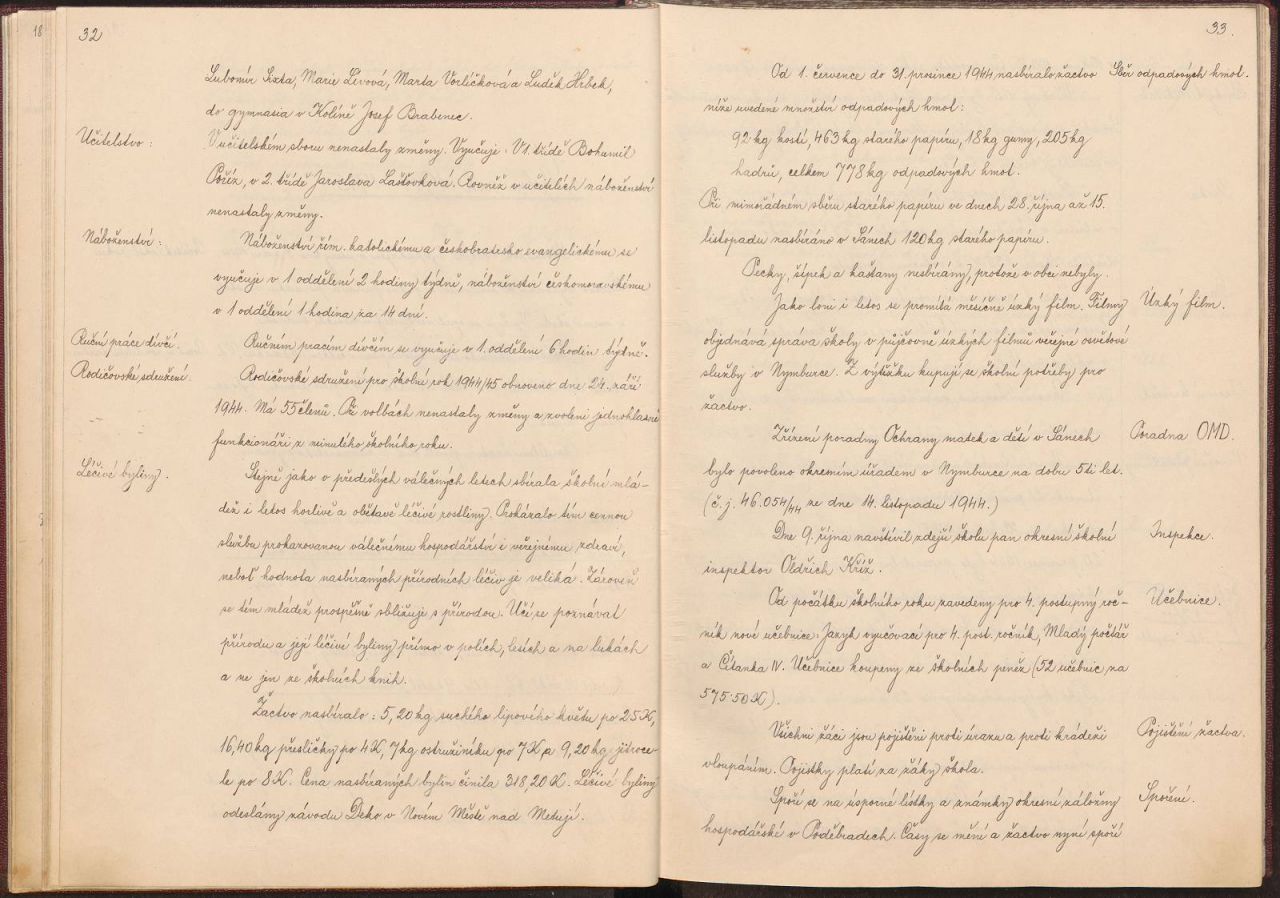 32
Lubomír Sixta, Marie Lívová, Marta Vorlíčková a Luděk Hrbek,
do gymnasia v Kolíně Josef Brabenec.
Učitelstvo: V učitelském sboru nenastaly změny. Vyučuje: V 1. třídě Bohumil
Poříz, v 2. třídě Jaroslava Lašťovková. Rovněž v učitelích náboženství
nenastaly změny.
Náboženství: Náboženství řím. katolickému a českobratrsko evangelickému se
vyučuje v 1 oddělení 2 hodiny týdně, náboženství českomoravskému
v 1 oddělení 1 hodina za 14 dní.
Ruční práce dívčí. Ručním pracím dívčím se vyučuje v 1. oddělení 6 hodin týdně.
Rodičovské sdružení. Rodičovské sdružení pro školní rok 1944/45 obnoveno dne 24. září
1944. Má 55 členů. Při volbách nenastaly změny a zvoleni jednohlasně
funkcionáři z minulého školního roku.
Léčivé byliny. Stejně jako v předešlých válečných letech sbírala školní mlá-
dež i letos horlivě a obětavě léčivé rostliny. Prokázalo tím cennou
službu prokazovanou válečnému hospodářství i veřejnému zdraví,
neboť hodnota nasbíraných přírodních léčiv je veliká. Zároveň
se tím mládež prospěšně sbližuje s přírodou. Učí se poznávat
přírodu a její léčivé byliny přímo v polích, lesích a na lukách
a ne jen ze školních knih.
Žactvo nasbíralo: 5,20 kg suchého lipového květu po 25 K,
16,40 kg přesličky po 4 K, 7 kg ostružiníku po 7 K a 9,20 kg jitroce-
le po 8 K. Cena nasbíraných bylin činila 318,20 K. Léčivé byliny
odeslány závodu Deko v Novém Městě nad Metují.
33.
Od 1. července do 31. prosince 1944 nasbíralo žactvo Sběr odpadových hmot.
níže uvedené množství odpadových hmot:
92 kg kostí, 463 kg starého papíru, 18 kg gumy, 205 kg
hadrů, celkem 778 kg odpadových hmot.
Při mimořádném sběru starého papíru ve dnech 28. října až 15.
listopadu nasbíráno v Sánech 120 kg starého papíru.
Pecky, šípek a kaštany nesbírány, protože v obci nebyly.
Jako loni i letos se promítá měsíčně úzký film. Filmy Úzký film.
objednává správa školy v půjčovně úzkých filmů veřejné osvětové
služby v Nymburce. Z výtěžku kupují se školní potřeby pro
žactvo.
Zřízení poradny Ochrany matek a dětí v Sánech Poradna OMD.
bylo povoleno okresním úřadem v Nymburce na dobu 5ti let.
(č. j. 46.054/44 ze dne 14. listopadu 1944.)
Dne 9. října navštívil zdejší školu pan okresní školní Inspekce.
inspektor Oldřich Kříž.
Od počátku školního roku zavedeny pro 4. postupný roč- Učebnice.
ník nové učebnice: Jazyk vyučovací pro 4. post. ročník, Mladý počtář
a Čítanka IV. Učebnice koupeny ze školních peněz (52 učebnic za
575·50 K).
Všichni žáci jsou pojištěni proti úrazu a proti krádeži Pojištění žactva.
vloupáním. Pojistky platí za žáky škola.
Spoří se na úsporné lístky a známky okresní záložny Spoření.
hospodářské v Poděbradech. Časy se mění a žactvo nyní spoří